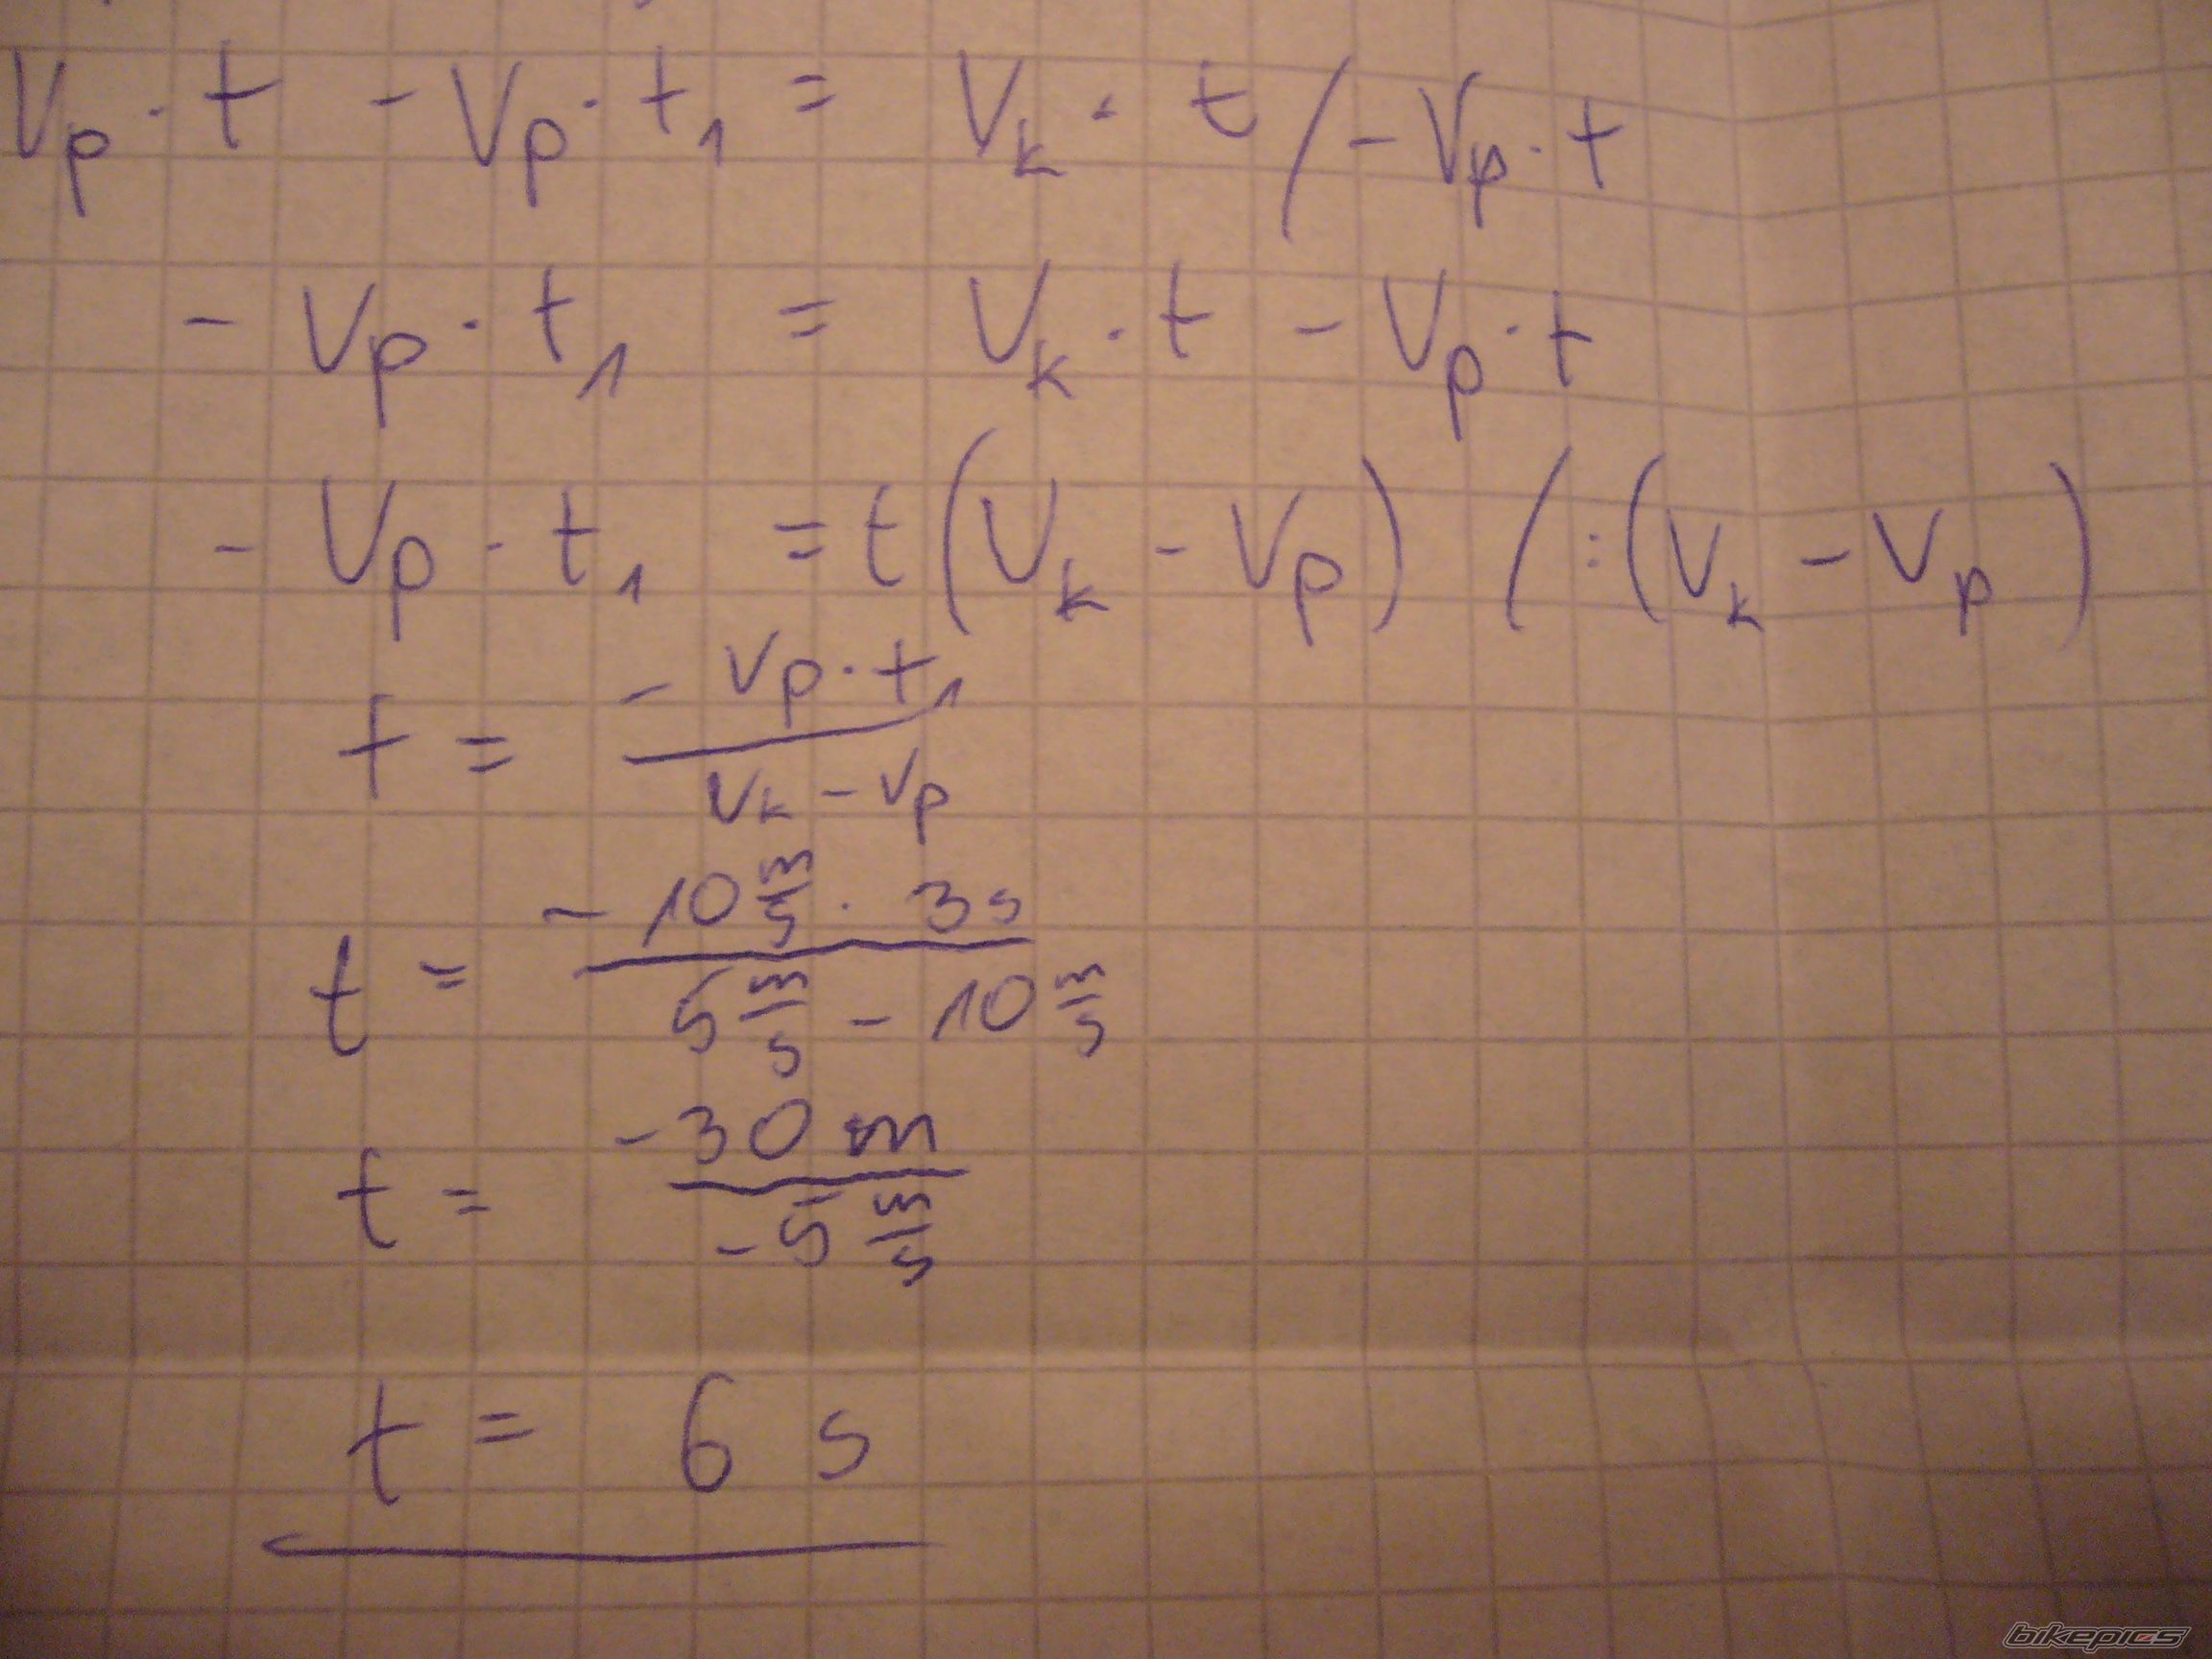 Vp · t - Vp · t₁ = Vk · t / - Vp · t
- Vp · t₁ = Vk · t - Vp · t
- Vp · t₁ = t (Vk - Vp) / : (Vk - Vp)
t = - Vp · t₁ / Vk - Vp
t = - 10 m/s · 3s / 5 m/s - 10 m/s
t = -30 m / -5 m/s
t = 6 s
bikepics